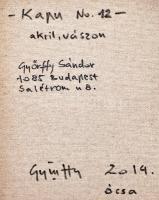 - Kapu No. 12 -
akril, vászon
- Győrffy Sándor
1085 Budapest
Salétrom u 8.
Győrffy 2014.
Ócsa